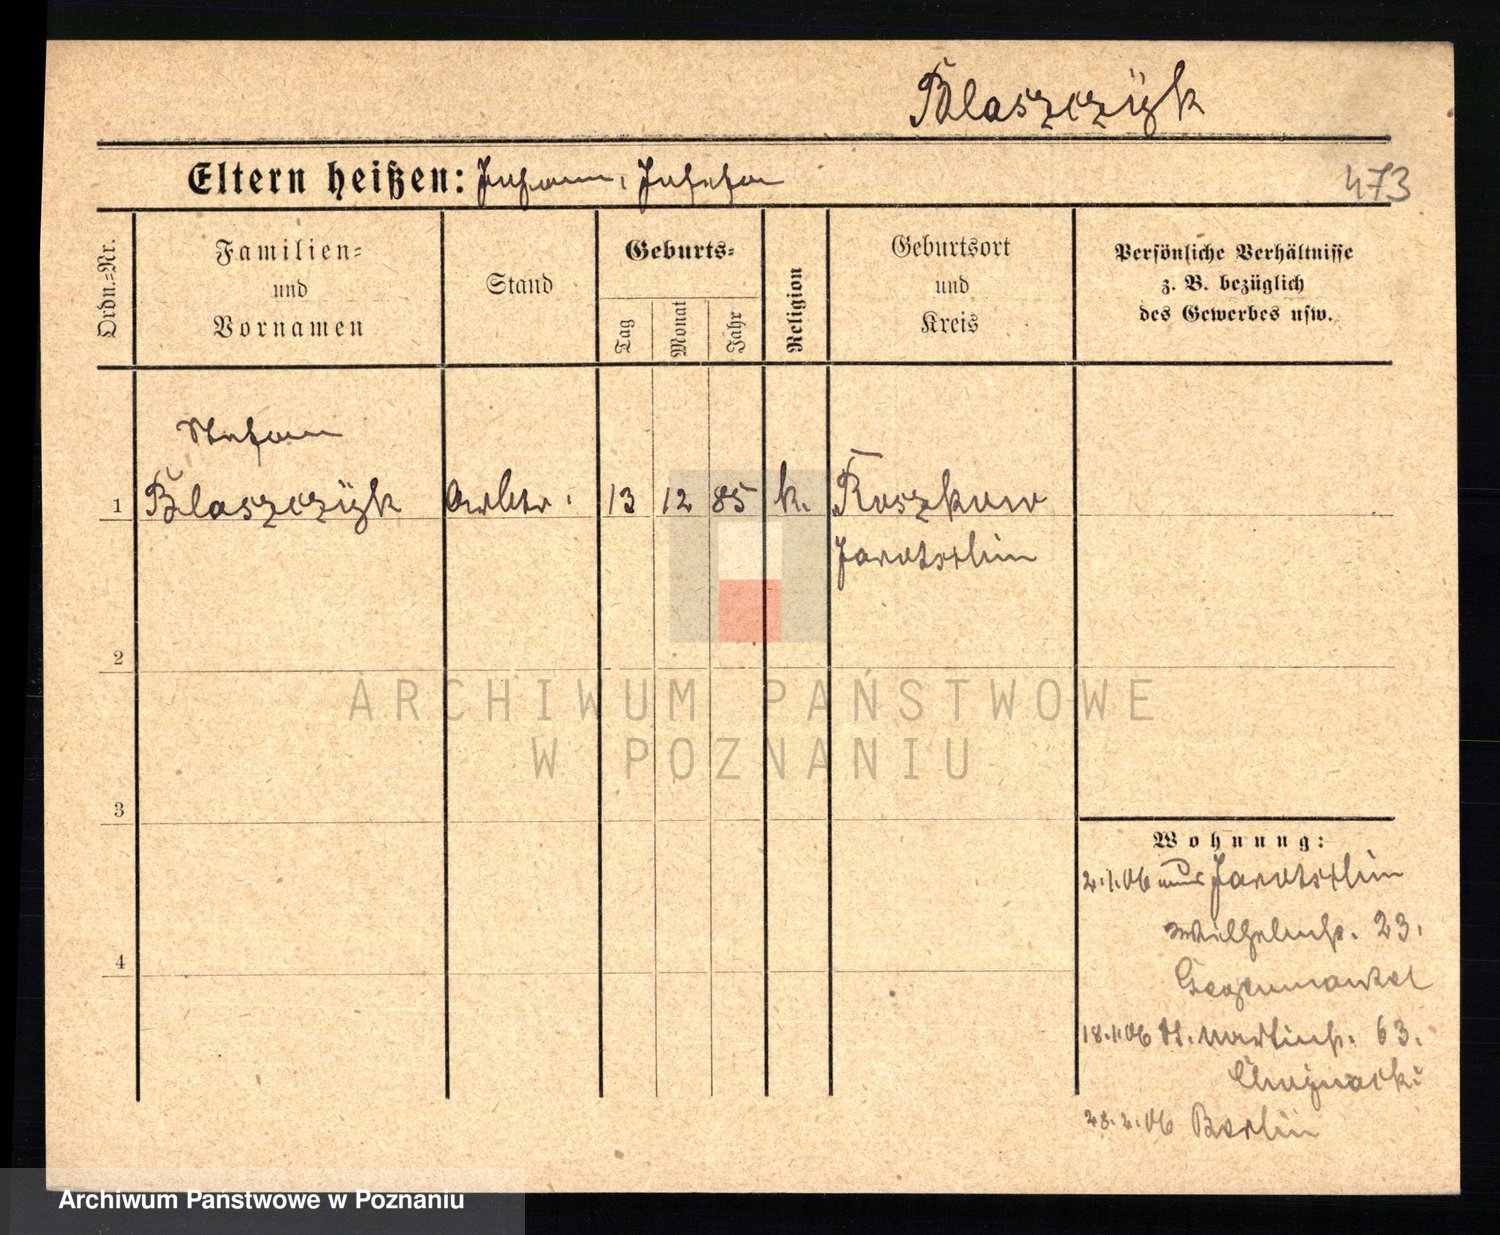 Blaszczÿk
Eltern heißen: Johann, Josefa
473
Ordn.-Nr.
Familien-
und
Vornamen
Stand
Geburts-
Tag
Monat
Jahr
Religion
Geburtsort
und
Kreis
Persönliche Verhältnisse
z. B. bezüglich
des Gewerbes usw.
Stefan
1 Blaszczÿk Arbtr. 13 12 85 k. Roszkow
Jarotschin
2
ARCHIWUM PAŃSTWOWE
W POZNANIU
3
Wohnung:
2.1.06 aus Jarotschin
Wilhelmstr. 23.
4
18.1.06 St. Martinstr. 63.
Chojnacki
23.2.06 Berlin
Archiwum Państwowe w Poznaniu